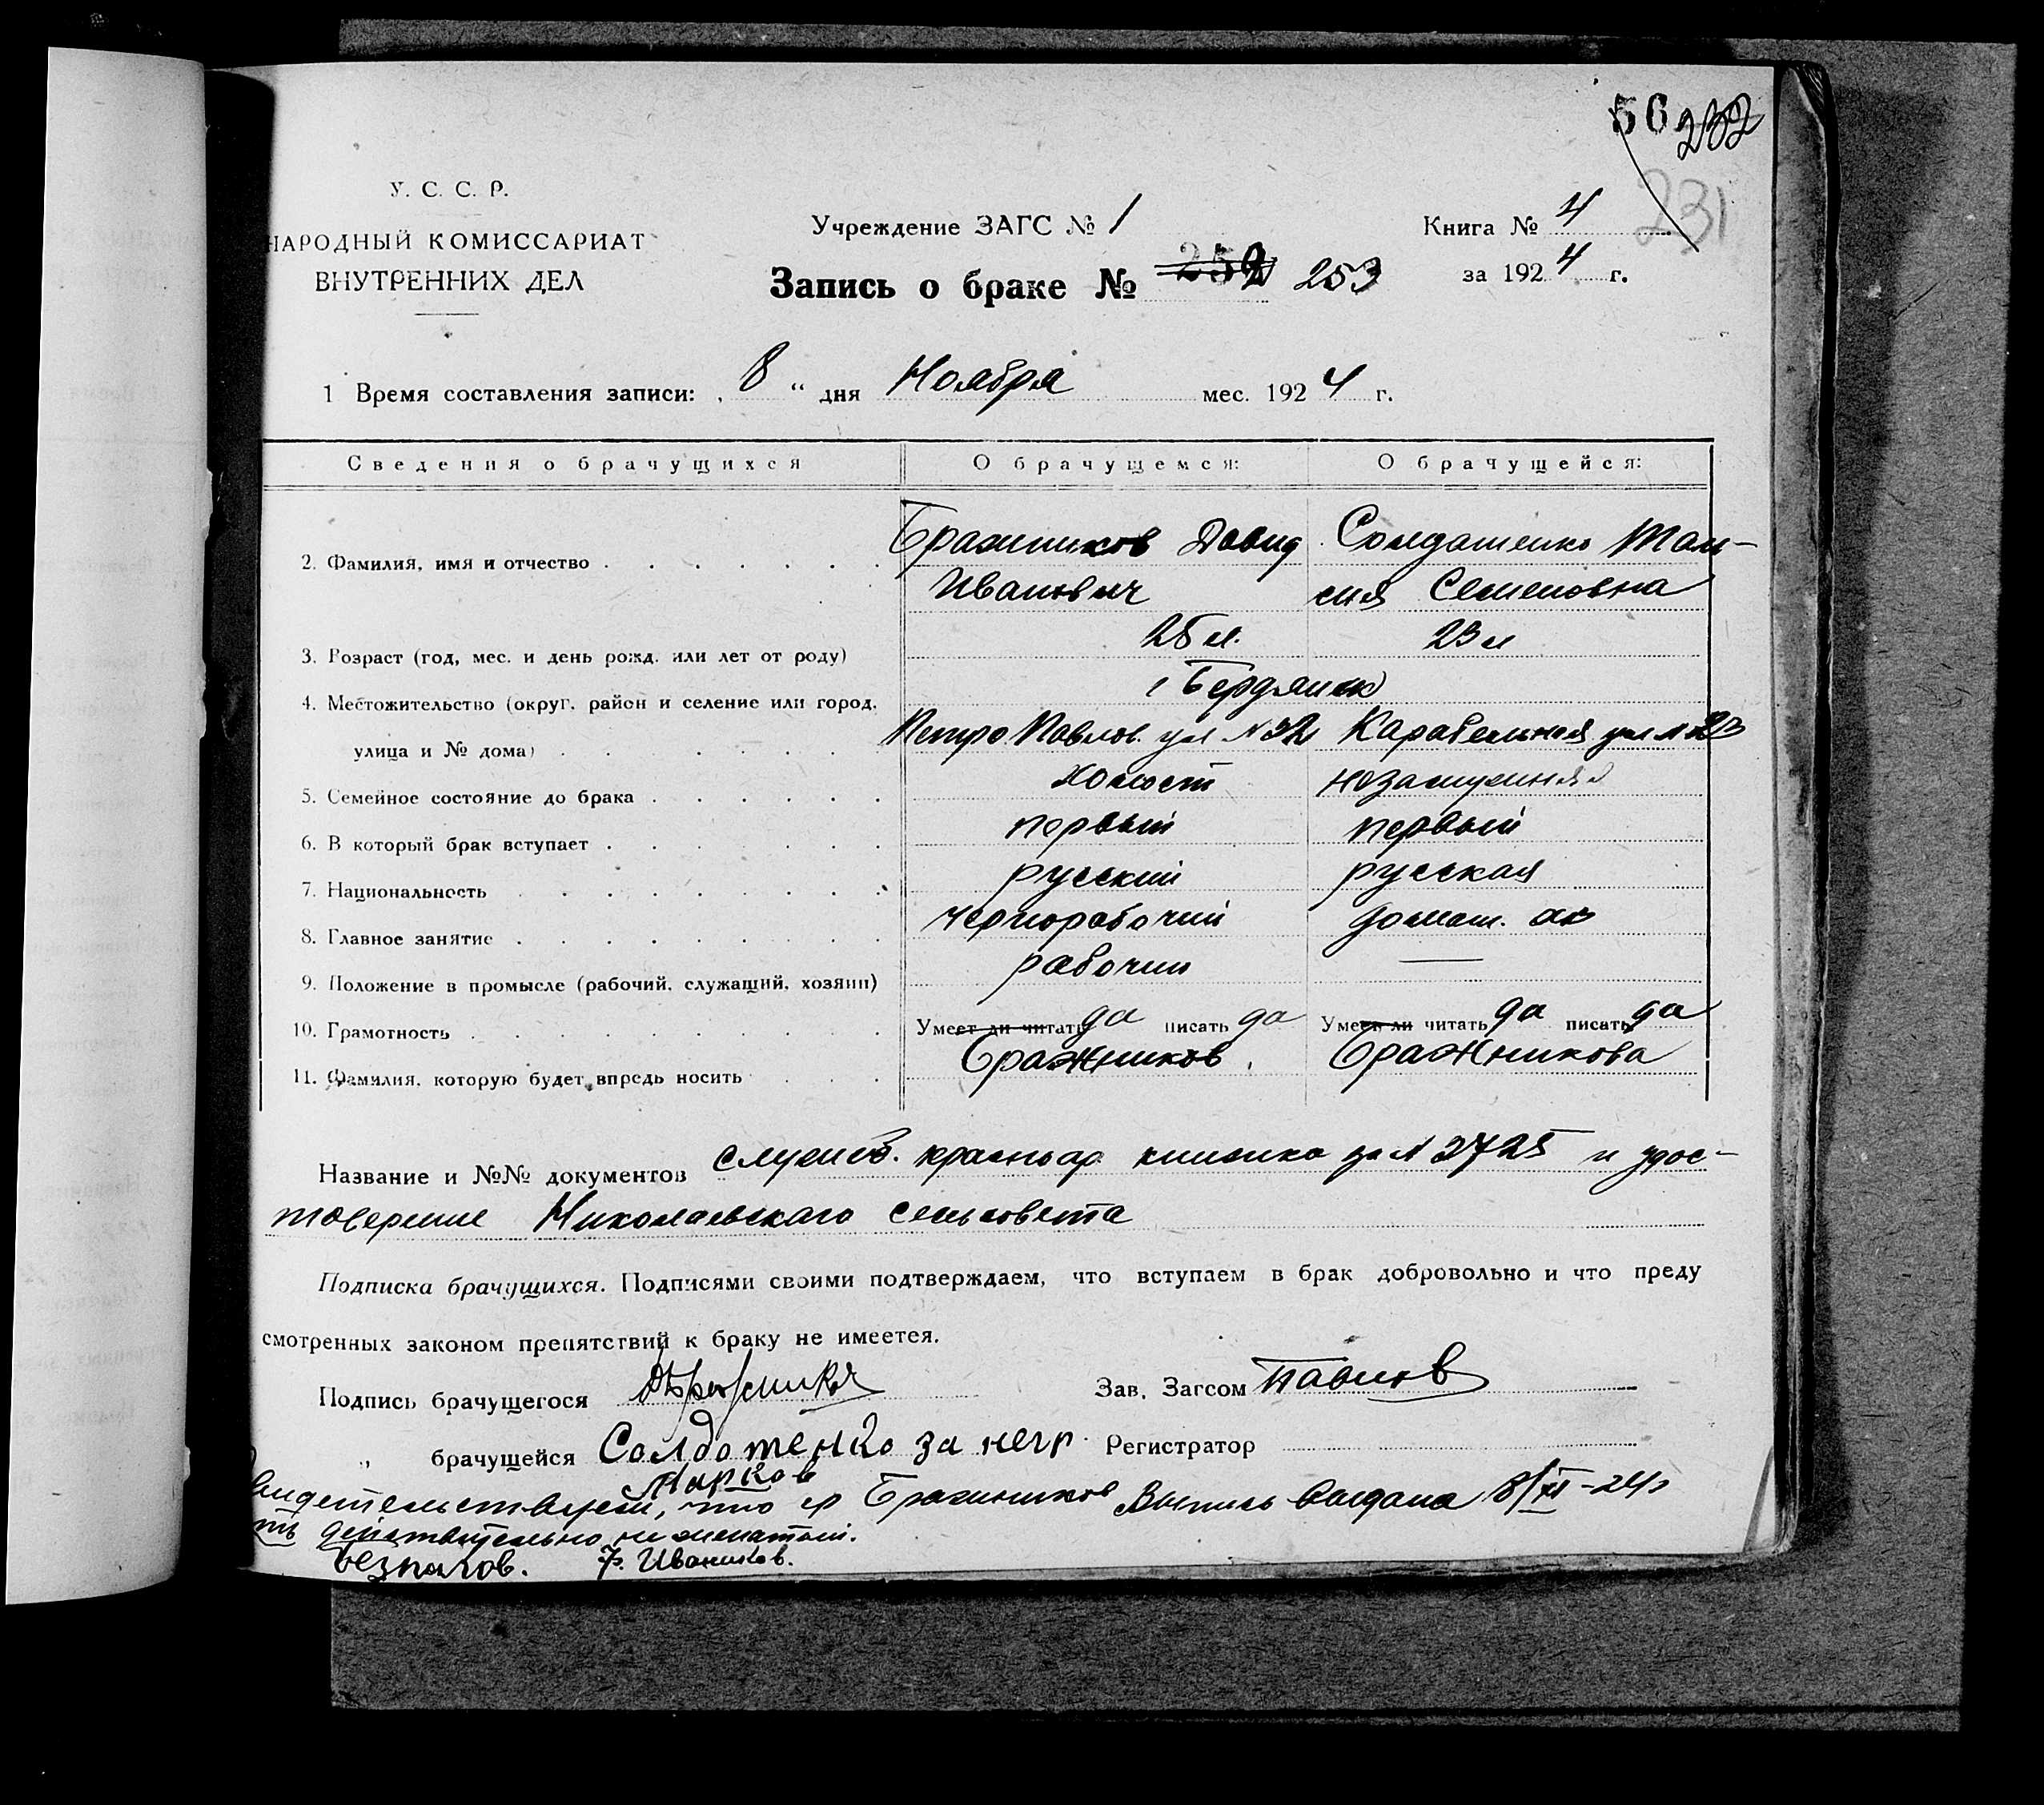 56 232
231
У. С. С. Р.
НАРОДНЫЙ КОМИССАРИАТ
ВНУТРЕННИХ ДЕЛ
Учреждение ЗАГС № 1
Запись о браке № 252 253
Книга № 4
за 1924 г.
1 Время составления записи: „ 8 “ дня Ноября мес. 1924 г.
Сведения о брачущихся О брачущемся: О брачущейся:
2. Фамилия, имя и отчество Бражников Давид Иванович Солдатенко Таисия Семеновна
3. Возраст (год, мес. и день рожд. или лет от роду) 25 л. 23 л
4. Местожительство (округ, район и селение или город, г Бердянск
улица и № дома) Петро Павлов. ул № 32 Карабельная ул № 23
5. Семейное состояние до брака холост незамужняя
6. В который брак вступает первый первый
7. Национальность русский русская
8. Главное занятие чернорабочий домаш. хоз
9. Положение в промысле (рабочий, служащий, хозяин) рабочий —
10. Грамотность Умеет ли читать да писать да Умеет ли читать да писать да
11. Фамилия, которую будет впредь носить Бражников. Бражникова
Название и №№ документов служеб. красноар книжка за № 2725 и удос-
товерение Николаевскаго сельсовета
Подписка брачущихся. Подписями своими подтверждаем, что вступаем в брак добровольно и что преду
смотренных законом препятствий к браку не имеется.
Подпись брачущегося ДБражников Зав. Загсом Павлов
„ брачущейся Солдатенко за негр Регистратор
Марков
видетельствуем, что гр Бражников Выпись выдана 8/XI-24г
ть действительно не женатый.
Ф. Иваников.